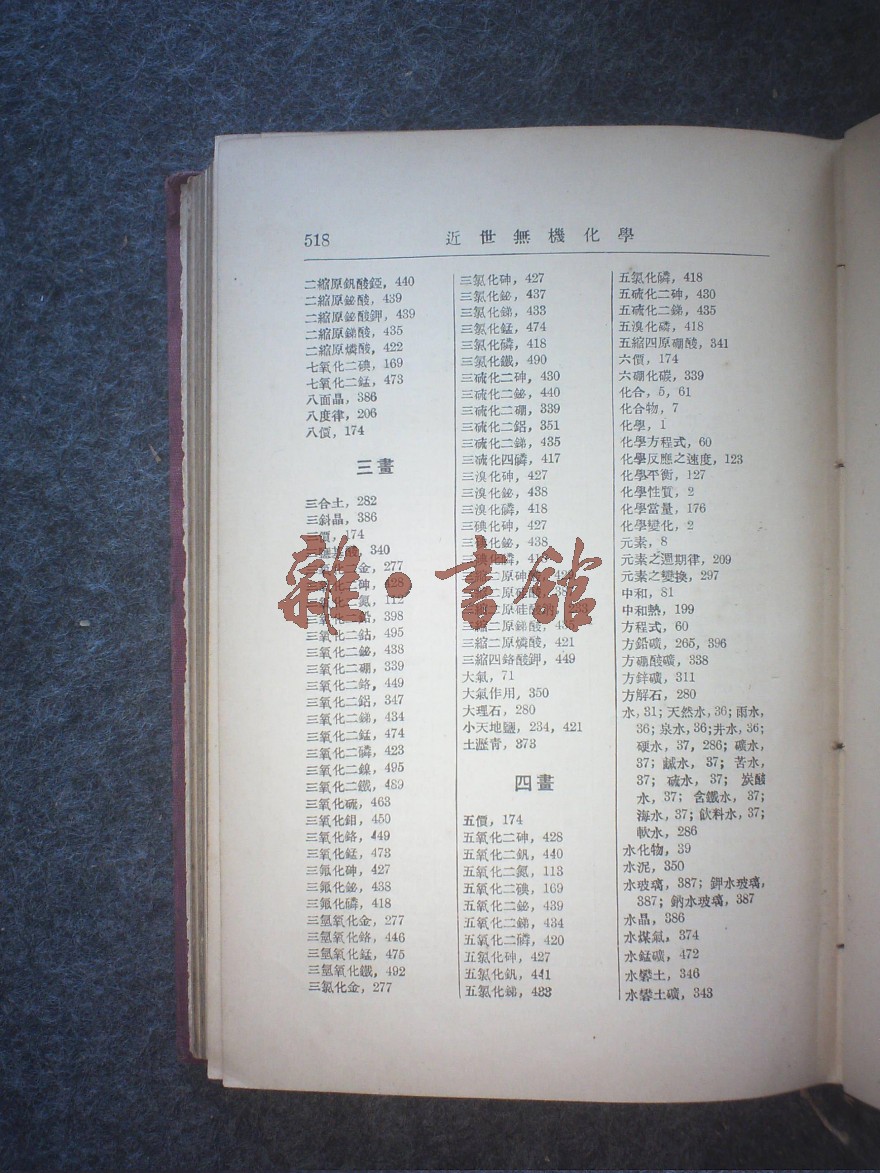 518
近世無機化學
二縮原釩酸錏，440
二縮原鉍酸，439
二縮原鉍酸鉀，439
二縮原銻酸，435
二縮原燐酸，422
七氧化二碘，169
七氧化二錳，473
八面晶，386
八度律，206
八價，174
三畫
三合土，282
三斜晶，386
三價，174
酸，340
三氧化二金，277
三氧化二砷，428
三氧化二氮，112
三氧化二鉛，398
三氧化二鈷，495
三氧化二鉍，438
三氧化二硼，339
三氧化二鉻，449
三氧化二鋁，347
三氧化二銻，434
三氧化二錳，474
三氧化二磷，423
三氧化二鎳，495
三氧化二鐵，489
三氧化硫，463
三氧化鉬，450
三氧化鉻，449
三氧化錳，473
三氟化砷，427
三氟化鉍，438
三氟化磷，418
三氫氧化金，277
三氫氧化鉻，446
三氫氧化錳，475
三氫氧化鐵，492
三氯化金，277
三氯化砷，427
三氯化鉍，437
三氯化銻，433
三氯化錳，474
三氯化磷，418
三氯化鐵，490
三硫化二砷，430
三硫化二鉍，440
三硫化二硼，339
三硫化二鋁，351
三硫化二銻，435
三硫化四磷，417
三溴化砷，427
三溴化鉍，438
三溴化磷，418
三碘化砷，427
三碘化鉍，438
三碘化磷，418
三縮二原砷酸，
三縮二原硅酸，
二原硅酸
三縮二原銻酸，
三縮二原燐酸，421
三縮四鉻酸鉀，449
大氣，71
大氣作用，350
大理石，280
小天地鹽，234，421
土瀝青，373
四畫
五價，174
五氧化二砷，428
五氧化二釩，440
五氧化二氮，113
五氧化二碘，169
五氧化二鉍，439
五氧化二銻，434
五氧化二磷，420
五氯化砷，427
五氯化釩，441
五氯化銻，433
五氯化磷，418
五硫化二砷，430
五硫化二銻，435
五溴化磷，418
五縮四原硼酸，341
六價，174
六硼化碳，339
化合，5，61
化合物，7
化學，1
化學方程式，60
化學反應之速度，123
化學平衡，127
化學性質，2
化學當量，176
化學變化，2
元素，8
元素之週期律，209
元素之變換，297
中和，81
中和熱，199
方程式，60
方鉛礦，265，396
方硼酸礦，338
方鋅礦，311
方解石，280
水，31；天然水，36；雨水，
36；泉水，36；井水，36；
硬水，37，286；礦水，
37；鹹水，37；苦水，
37；硫水，37；炭酸
水，37；含鐵水，37；
海水，37；飲料水，37；
軟水，286
水化物，39
水泥，350
水玻璃，387；鉀水玻璃，
387；鈉水玻璃，387
水晶，386
水煤氣，374
水錳礦，472
水礬土，346
水礬土礦，343
雜·書館